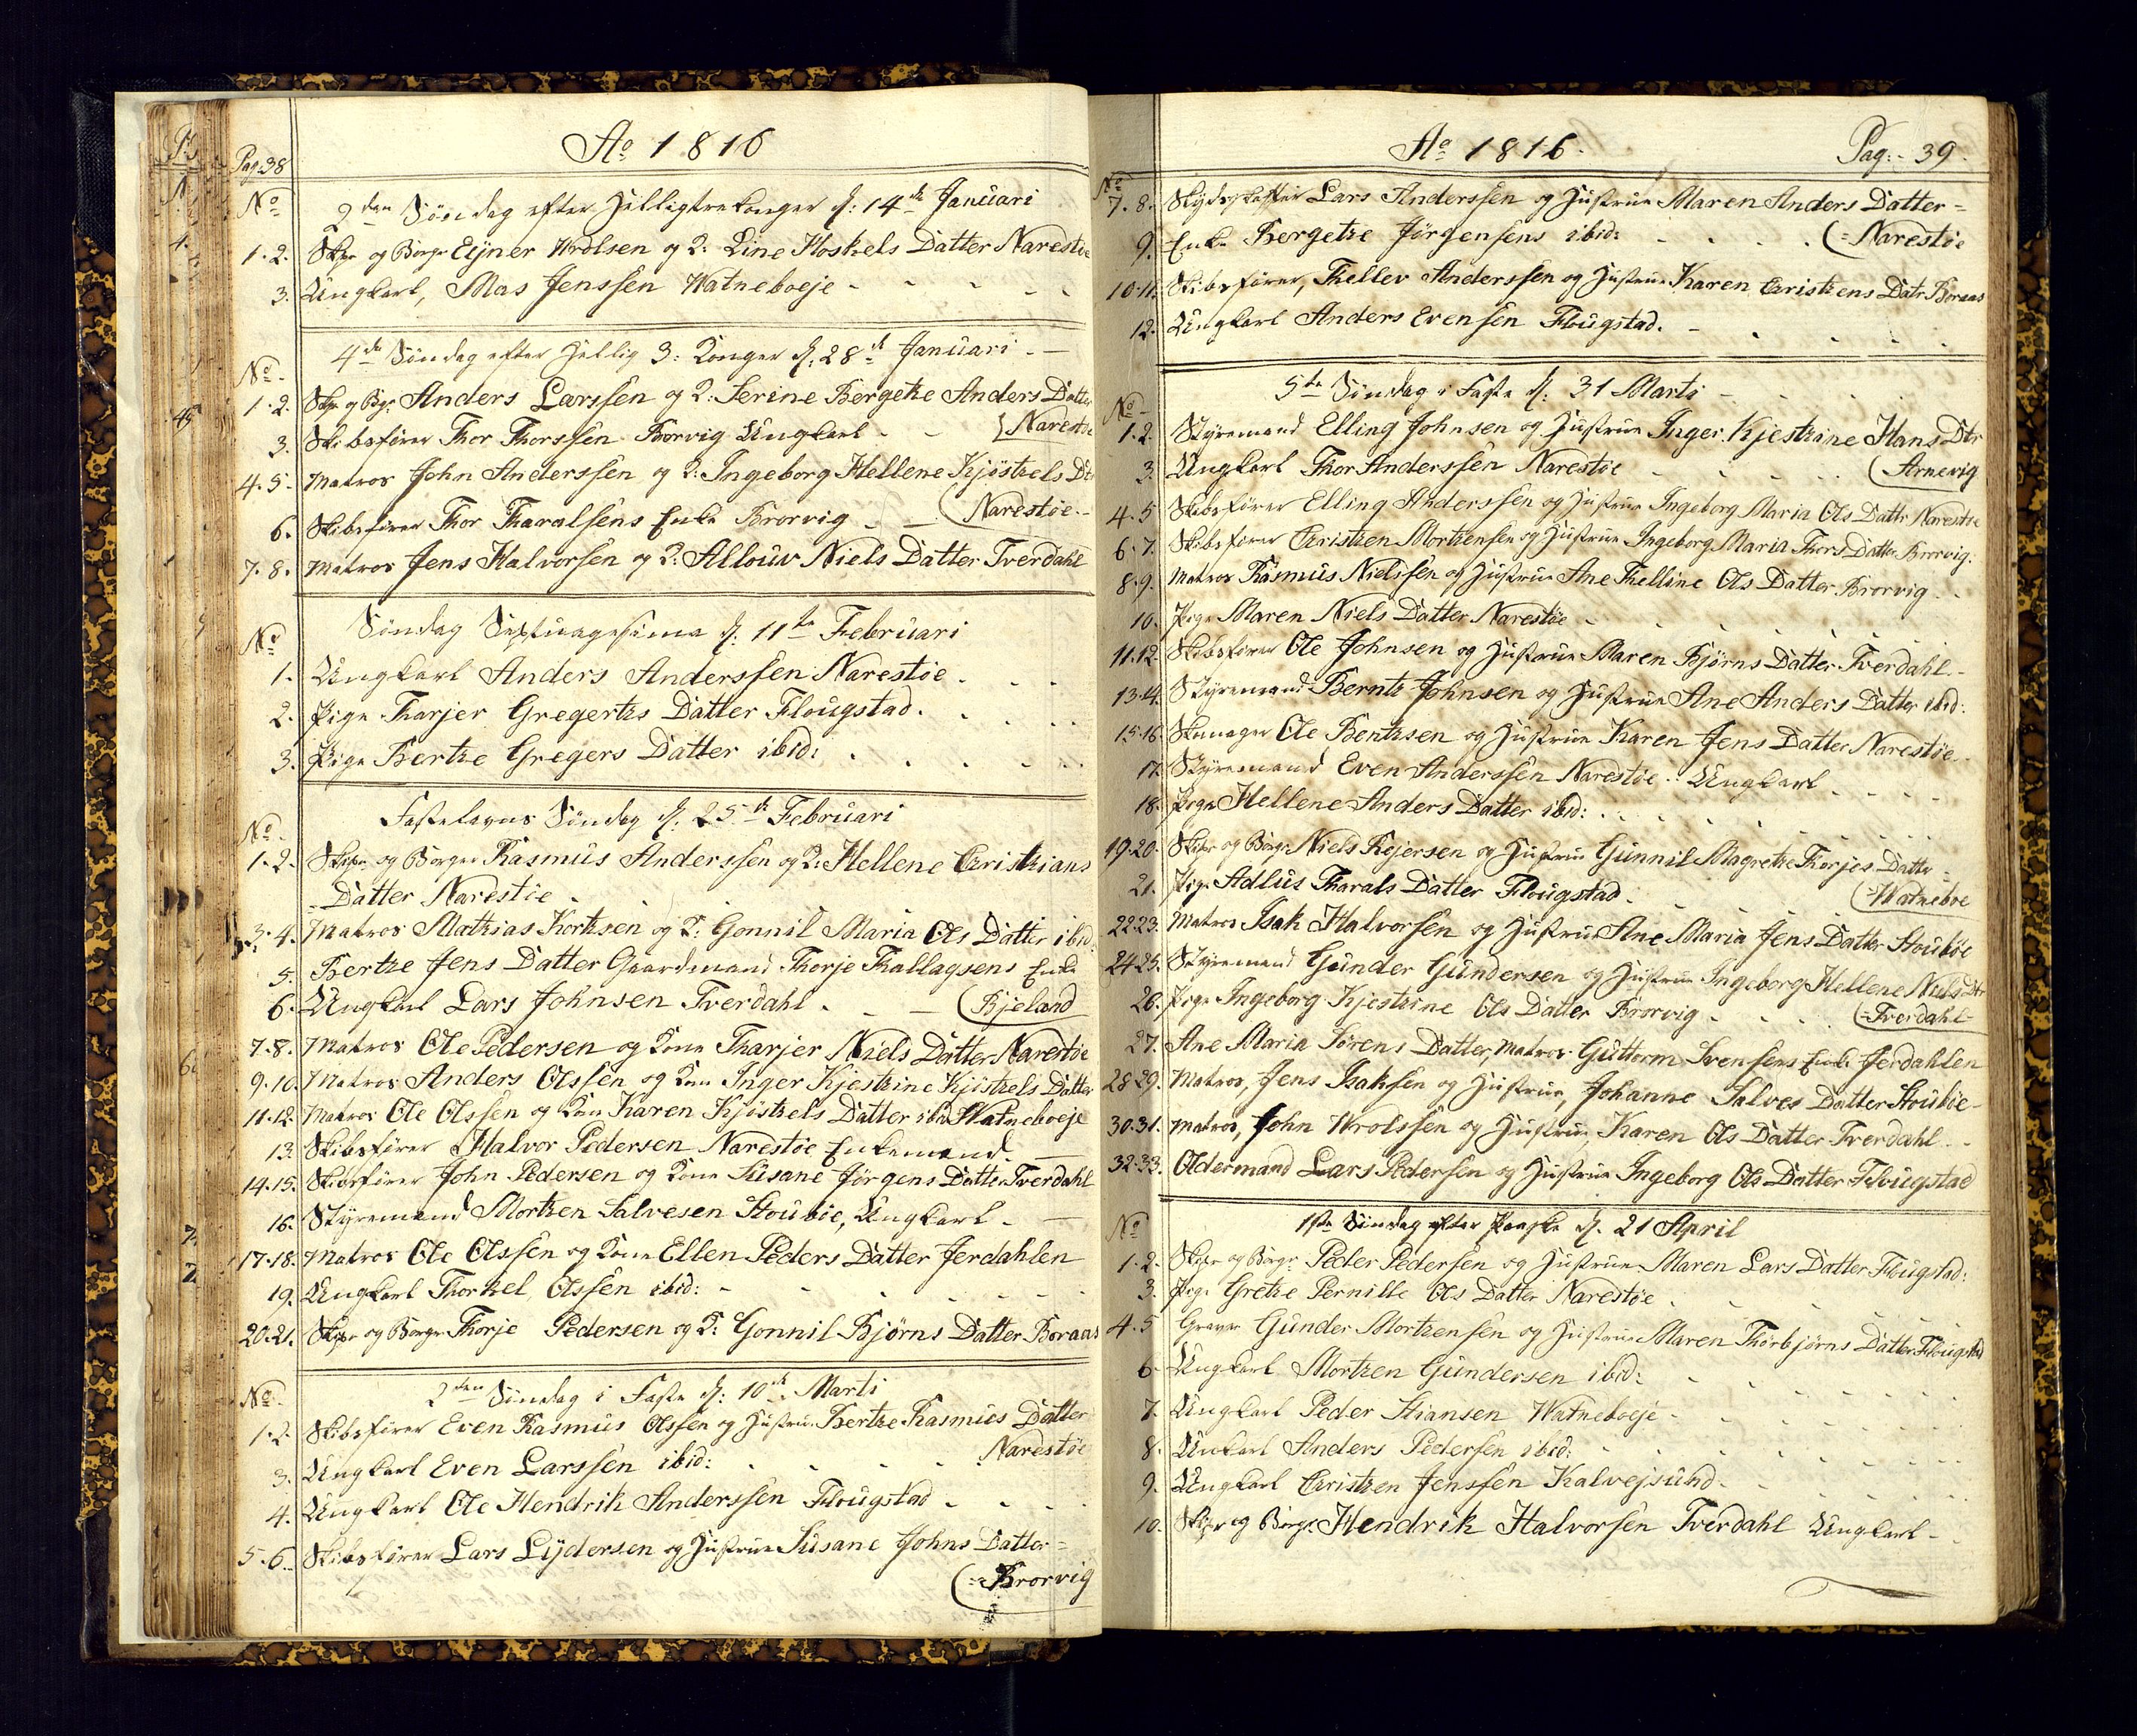 Pag: 38
Ao 1816
No
2den Søndag efter Helligtrekonger d: 14de Januari
1.2. Skipr og Borgr Eijner Wrolsen og K: Line Koskels Datter Narestøe
3. Ungkarl, Mas Jenssen Watneboeje
4de Søndag efter Hellig 3: Konger d: 28de Januari
No
1.2. Skpr og Bgr: Anders Larssen og K: Serine Bergete Anders Datter
3. Skibsfører Thor Thorssen Brorvig Ungkarl (Narestøe
4.5. Matros John Anderssen og K: Ingeborg Hellene Kjøstels Dtr
6. Skibsfører Thor Tharalsens Enke Brorvig (Narestøe
7.8. Matros Jens Halvorsen og K: Allouw Niels Datter Tverdahl
Søndag Septuagesima d: 11te Februari
No
1. Ungkarl Anders Anderssen Narestøe
2. Pige Tharjer Gregerts Datter Flougstad
3. Pige Berthe Gregers Datter ibid:
Fastelavns Søndag d: 25de Februari
No
1.2. Skipr og Borger Rasmus Anderssen og K: Hellene Christians
Datter Narestøe
3.4. Matros Mathias Kortsen og K: Gonnil Maria Ols Datter ibid:
5. Berthe Jens Datter Gaardmand Thorje Thallagsens Enke
6. Ungkarl Lars Johnsen Tverdahl (Bjeland
7.8. Matros Ole Pedersen og Kone Tharjer Niels Datter Narestøe
9.10. Matros Anders Olssen og Kone Inger Kjestine Kjøstels Datter
11.12. Matros Ole Olssen og Kone Karen Kjøstels Datter ibid Watneboeje
13. Skibsfører Halvor Pedersen Narestøe Enkemand
14.15. Skibsfører John Pedersen og Kone Susane Jørgens Datter Tverdahl
16. Styremand Morthen Salvesen Stoubøe, Ungkarl
17.18. Matros Ole Olssen og Kone Ellen Peders Datter Jerdahlen
19. Ungkarl Thorkel Olssen ibid:
20.21. Skipr og Borgr Thorje Pedersen og K: Gonnil Bjørns Datter Boraas
No
2den Søndag i Faste d: 10de Marti
1.2. Skibsfører Even Rasmus Olssen og Hustrue Berthe Rasmus Datter
Narestøe
3. Ungkarl Even Larssen ibid:
4. Ungkarl Ole Hendrik Anderssen Flougstad
5.6. Skibsfører Lars Lydersen og Hustrue Susane Johns Datter
(Brorvig
Ao 1816
Pag: 39
No
7.8. Lars Anderssen og Hustrue Maren Anders Datter
9. Enke Bergethe Jørgensens ibid: (Narestøe
10.11. Skibsfører, Thellev Anderssen og Hustrue Karen Christens Datr Boraas
12. Ungkarl Anders Evensen Flougstad
5te Søndag i Faste d: 31 Marti
No
1.2. Styremand Elling Johnsen og Hustrue Inger Kjestine Hans Dtr
3. Ungkarl Thor Anderssen Narestøe (Arnevig
4.5 Skibsfører Elling Anderssen og Hustrue Ingeborg Maria Ols Dattr Narestøe
6.7. Skibsfører Christen Mortensen og Hustrue Ingeborg Maria Thors Datter Brorvig:
8.9. Matros Rasmus Nielssen og Hustrue Ane Thelline Ols Datter Brorvig
10. Pige Maren Niels Datter Narestøe
11.12. Skibsfører Ole Johnsen og Hustrue Maren Bjørns Datter Tverdahl
13.14. Styremand Bernt Johnsen og Hustrue Ane Anders Datter ibid:
15.16. Skomager Ole Bentsen og Hustrue Karen Jens Datter Narestøe
17. Styremand Even Anderssen Narestøe Ungkarl
18. Pige Hellene Anders Datter ibid:
19.20. Skipr og Borgr Niels Rejersen og Hustrue Gunnil Magrethe Thorjes Datter
21. Pige Adlus Tharals Datter Flougstad (Watneboe
22.23. Matros Isak Halvorsen og Hustrue Ane Maria Jens Datter Stoubøe
24.25. Styremand Gunder Gundersen og Hustrue Ingeborg Hellene Niels Dtr
26. Pige Ingeborg Kjestine Ols Datter Brorvig (Tverdahl
27. Ane Maria Sørens Datter, Matros Guttorm Svensens Enke Jerdahlen
28.29. Matros, Jens Isaksen og Hustrue, Johanne Salves Datter Stoubøe
30.31. Matros, John Wrolssen og Hustrue, Karen Ols Datter Tverdahl
32.33. Oldermand Lars Pedersen og Hustrue Ingeborg Ols Datter Flougstad
No
1ste Søndag efter Paaske d: 21 April
1.2. Skipr og Borgr Peder Pedersen og Hustrue Maren Lars Datter Flougstad:
3. Pige Grethe Pernille Ols Datter Narestøe
4.5 Graver Gunder Mortensen og Hustrue Maren Thorbjørns Datter Flougstad
6. Ungkarl Morten Gundersen ibid:
7. Ungkarl Peder Stiansen Watneboeje
8. Unkarl Anders Pedersen ibid:
9. Ungkarl Christen Jenssen Kalvejsund
10. Skipr og Borgr Hendrik Halvorsen Tverdahl Ungkarl